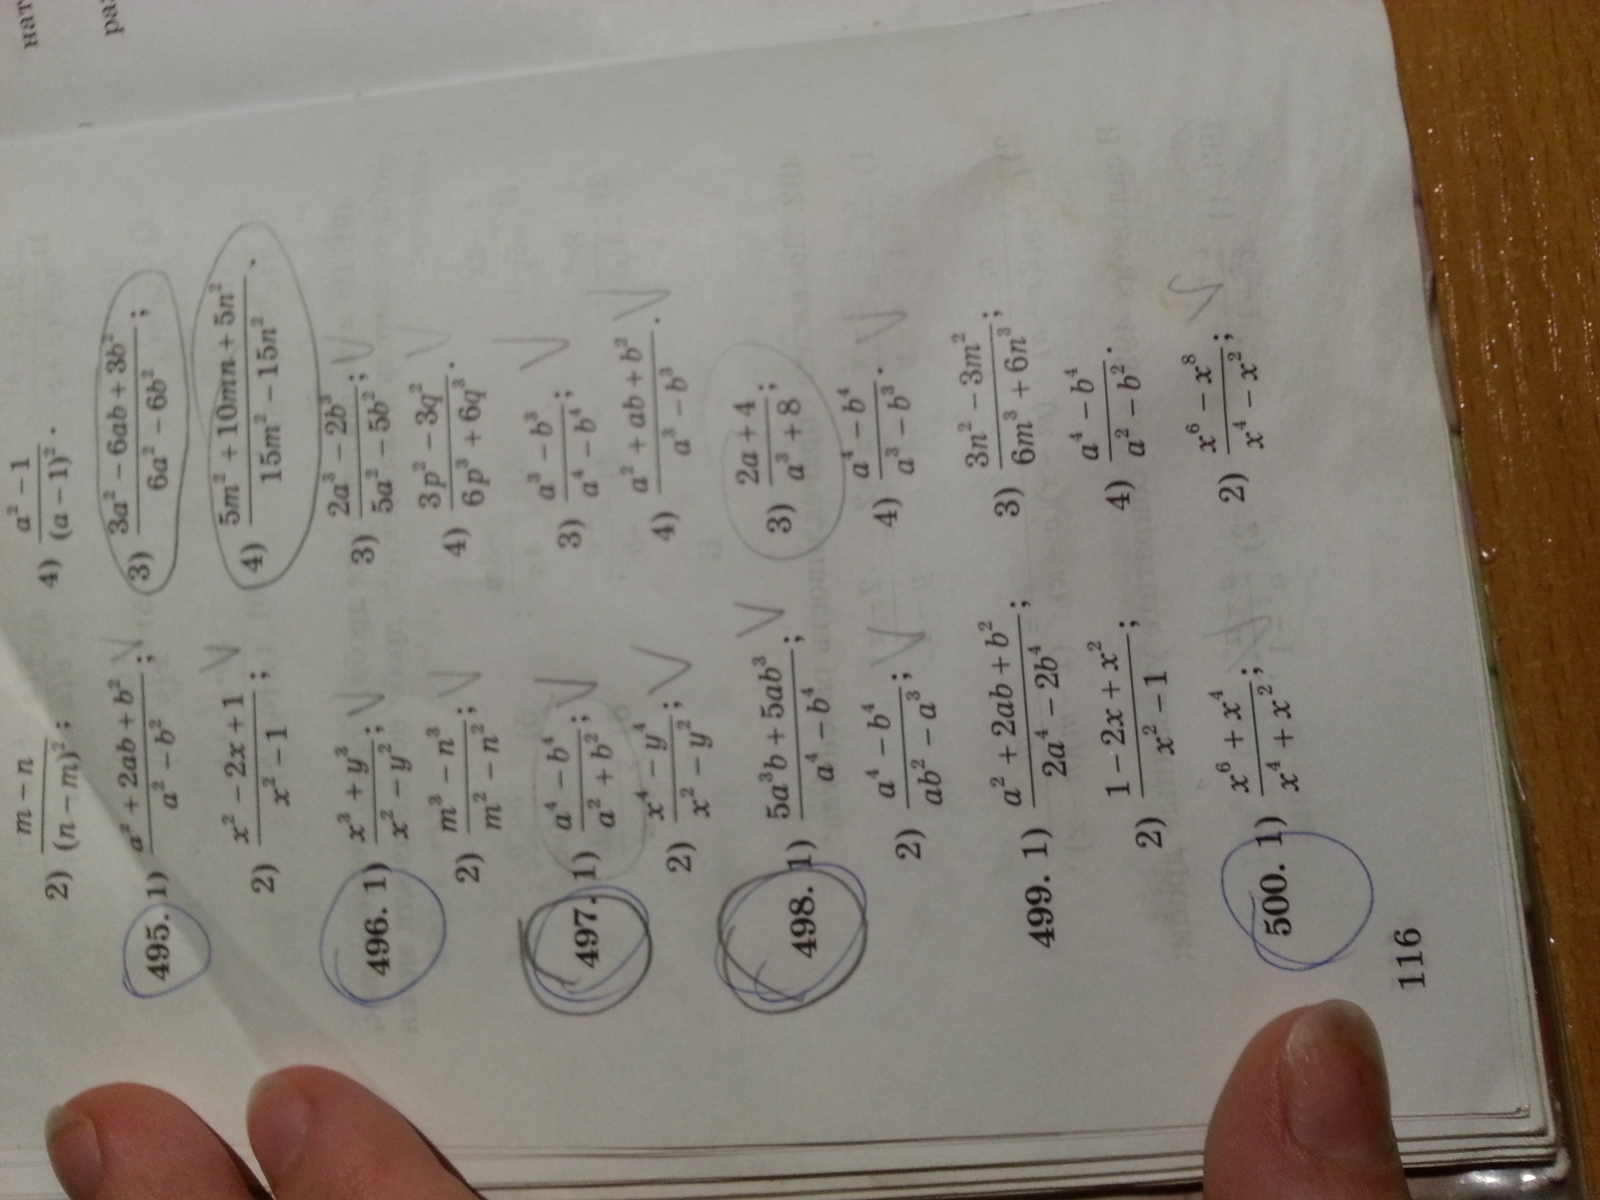 нат
ра
2) (m − n)/(n − m)²; 4) (a² − 1)/(a − 1)².
495. 1) (a² + 2ab + b²)/(a² − b²); 3) (3a² − 6ab + 3b²)/(6a² − 6b²);
2) (x² − 2x + 1)/(x² − 1); 4) (5m² + 10mn + 5n²)/(15m² − 15n²).
496. 1) (x³ + y³)/(x² − y²); 3) (2a³ − 2b³)/(5a² − 5b²);
2) (m³ − n³)/(m² − n²); 4) (3p² − 3q²)/(6p³ + 6q³).
497. 1) (a⁴ − b⁴)/(a² + b²); 3) (a³ − b³)/(a⁴ − b⁴);
2) (x⁴ − y⁴)/(x² − y²); 4) (a² + ab + b²)/(a³ − b³).
498. 1) (5a³b + 5ab³)/(a⁴ − b⁴); 3) (2a + 4)/(a³ + 8);
2) (a⁴ − b⁴)/(ab² − a³); 4) (a⁴ − b⁴)/(a³ − b³).
499. 1) (a² + 2ab + b²)/(2a⁴ − 2b⁴); 3) (3n² − 3m²)/(6m³ + 6n³);
2) (1 − 2x + x²)/(x² − 1); 4) (a⁴ − b⁴)/(a² − b²).
500. 1) (x⁶ + x⁴)/(x⁴ + x²); 2) (x⁶ − x⁸)/(x⁴ − x²);
116